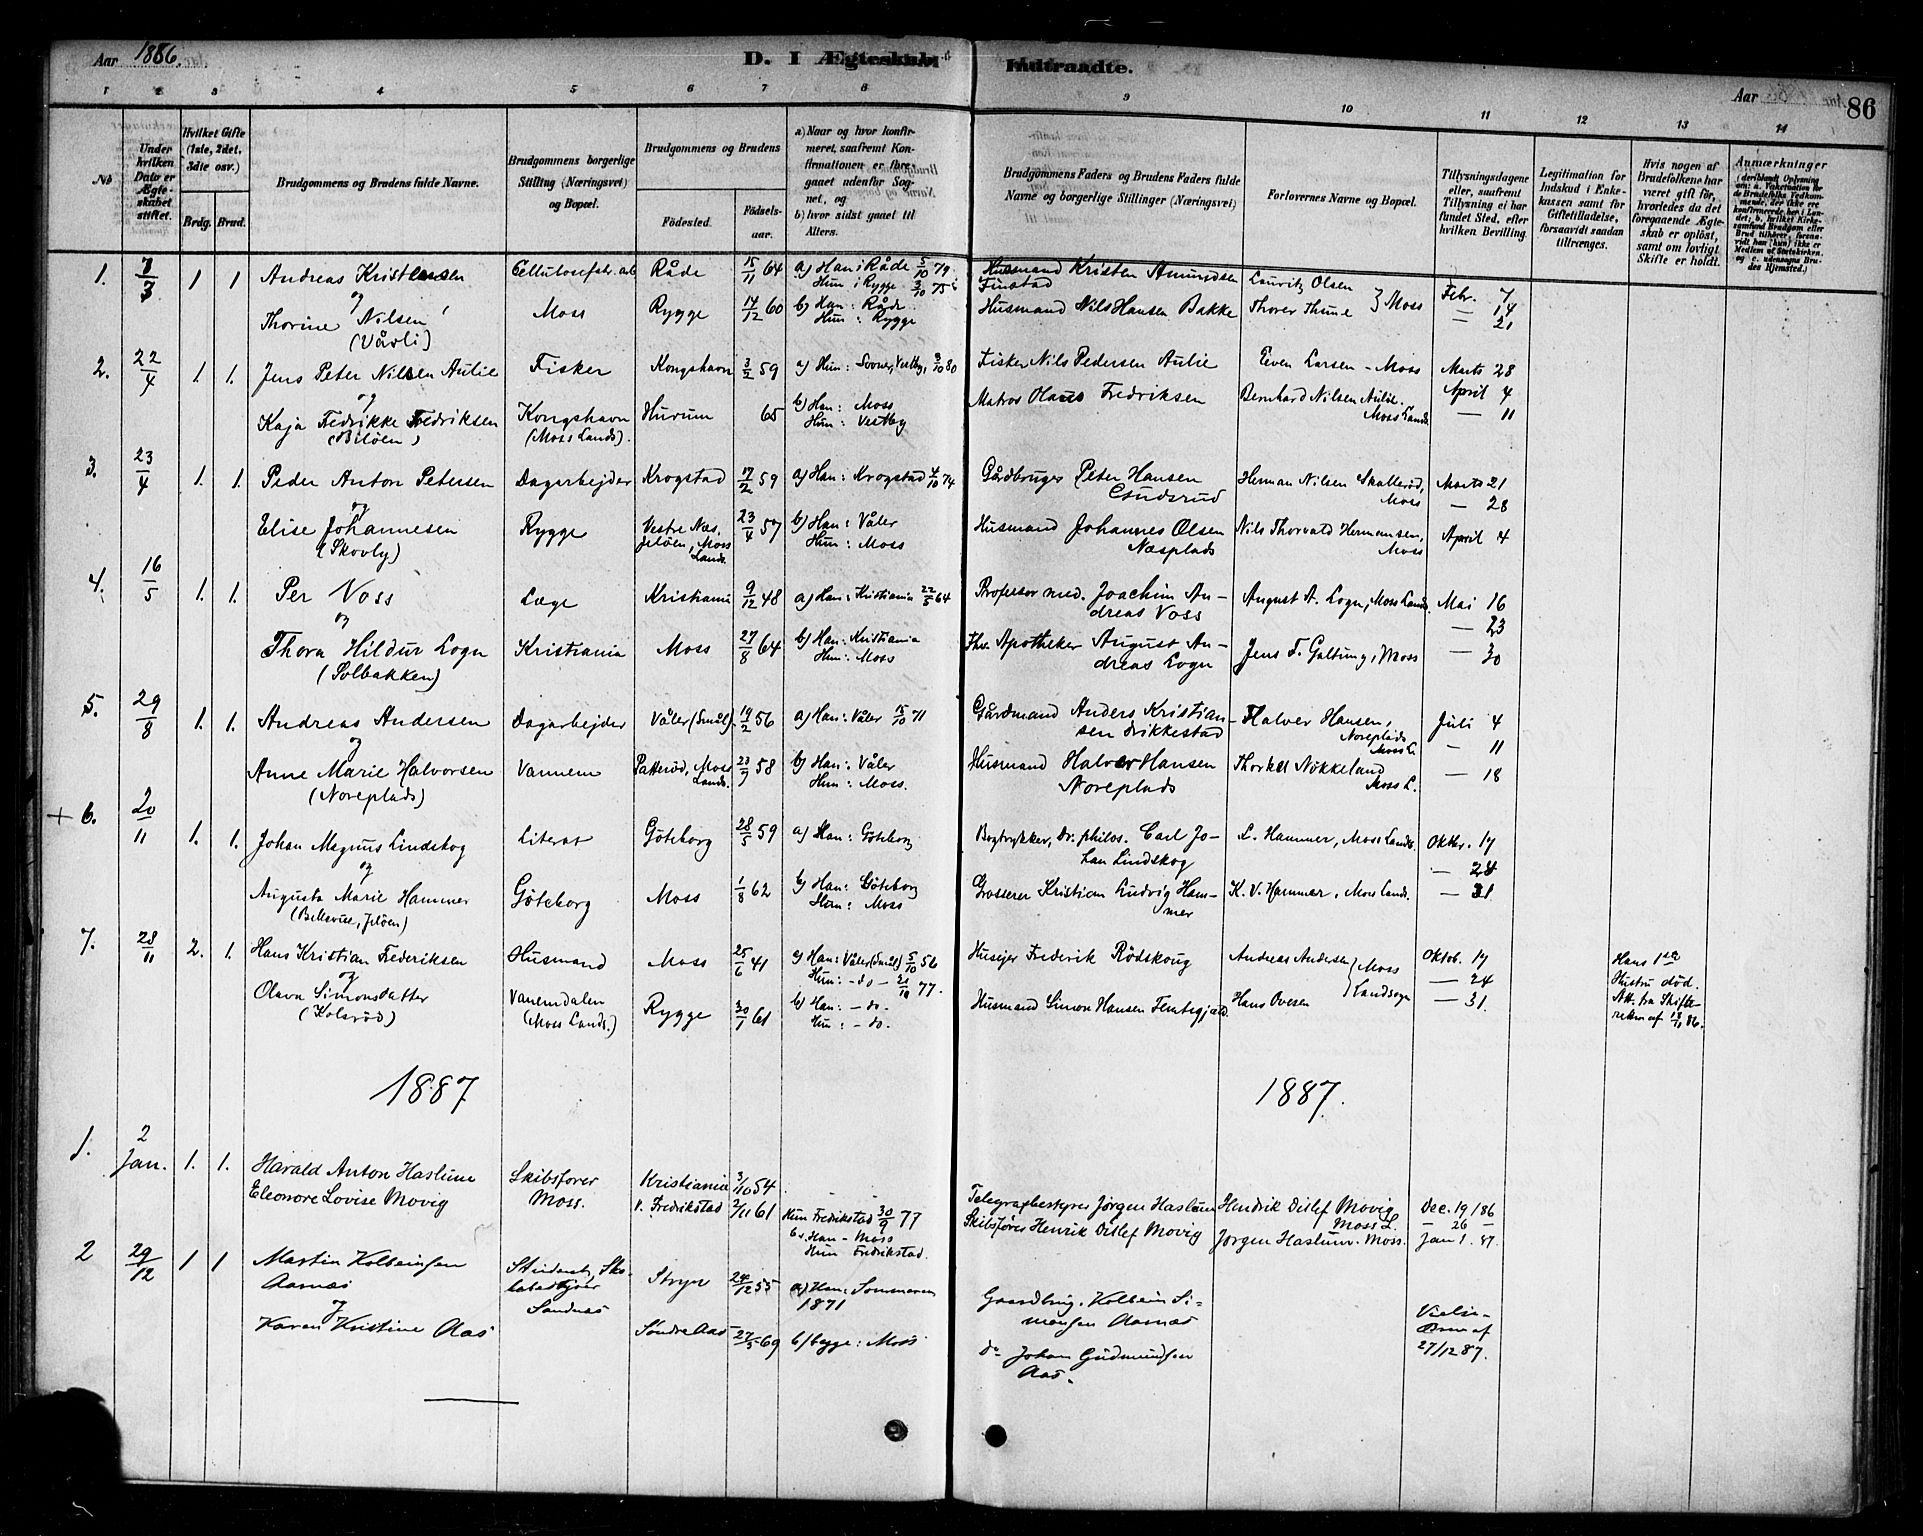 Aar 1886.
D. I Ægteskab
Indtraadte.
Aar
86
1 2 3 4 5 6 7 8 9 10 11 12 13 14
No
Under hvilken Dato er Ægteskabet stiftet.
Hvilket Gifte (1ste, 2det, 3die osv.)
Brdg. Brud.
Brudgommens og Brudens fulde Navne.
Brudgommens borgerlige Stilling (Næringsvei) og Bopæl.
Brudgommens og Brudens
Fødested.
Fødselsaar.
a) Naar og hvor konfirmeret, saafremt Konfirmationen er foregaaet udenfor Sognet, og
b) hvor sidst gaaet til Alters.
Brudgommens Faders og Brudens Faders fulde Navne og borgerlige Stillinger (Næringsvei)
Forlovernes Navne og Bopæl.
Tillysningsdagene eller, saafremt Tillysning ei har fundet Sted, efter hvilken Bevilling.
Legitimation for Indskud i Enkekassen samt for Giftetilladelse, forsaavidt saadan tiltrænges.
Hvis nogen af Brudefolkene har været gift før, hvorledes da det foregaaende Ægteskab er opløst, samt om lovligt Skifte er holdt.
Anmærkninger
1. 7/3 1 1 Andreas Kristensen Cellulosefabr. arb. Råde 15/11 64 a) Han i Råde 5/10 79. Husmand Kristen Amundsen Finstad Lauritz Olsen } Moss Febr. 7
og Hun i Rygge 3/10 75
Thorine Nilsen (Vårli) Moss Rygge 17/12 60 b) Han: Råde Hun: Rygge Husmand Nils Hansen Bakke Thorer Thune — 14
— 21
2. 22/4 1. 1. Jens Peter Nilsen Aulie Fisker Kongshavn 3/2 59 a) Hun: Soner, Vestby, 3/10 80 Fisker Nils Pedersen Aulie Even Larsen - Moss Marts 28
og
Kaja Fredrikke Fredriksen (Biløen) Kongshavn (Moss Lands). Hurum 65 b) Han: Moss Hun: Vestby Matros Olaus Fredriksen Bernhard Nilsen Aulie. Moss Lands. April 4
— 11
3. 23/4 1. 1. Peder Anton Petersen Dagarbejder Krogstad 7/2 59 a) Han: Krogstad 4/10 74 Gårdbruger Peter Hansen Herman Nilsen Skallerød, Moss Marts 21
— 28
og
Elise Johannesen (Skovly) Rygge Vestre Næs, Jeløen, Moss Lands. 23/4 57 b) Han: Våler Hun: Moss Husmand Johannes Olsen Næsplads Nils Thorvald Hermansen, Moss April 4
4. 16/5 1. 1. Per Voss Læge Kristiania 9/12 48 a) Han: Kristiania 22/5 64 Professor med. Joachim Andreas Voss August A. Logn, Moss Lands. Mai 16
og — 23
Thora Hildur Logn (Solbakken) Kristiania Moss 27/8 64 b) Han: Kristiania Hun: Moss Fhv. Apotheker August Andreas Logn Jens F. Galtung, Moss — 30
5. 29/8 1. 1. Andreas Andersen Dagarbejder Våler (Smål). 19/2 56 a) Han: Våler 15/10 71 Gårdmand Anders Kristiansen Halver Hansen, Noreplads Moss L. Juli 4
og — 11
Anne Marie Halvorsen (Noreplads) Vannem Patterød, Moss Lands. 23/7 58 b) Han: Våler Hun: Moss. Husmand Halver Hansen Noreplads Thorkel Nøkkeland Moss L. — 18
+ 6. 20/11 1. 1. Johan Magnus Lindskog Literat Göteborg 28/5 59 a) Han: Göteborg Bogtrykker, Dr. philos. Carl Johan Lindskog L. Hammer, Moss Lands. Oktbr. 17
og — 24
Augusta Marie Hammer (Bellevue, Jeløen) Göteborg Moss 1/8 62 b) Han: Göteborg Hun: Moss Grosserer Kristian Ludvig Hammer K. V. Hammer, Moss Lands. — 31
7. 28/11 2. 1. Hans Kristian Frederiksen Husmand Moss 25/6 41 a) Han: Våler (Smål) 5/10 56 Husejer Frederik Rødskoug Andreas Andersen } Moss Landsogn Oktob. 17 Hans 1ste Hustru død.
og Hun: - do - 21/10 77. — 24
Olava Simonsdatter (Kolsrød) Vanemdalen (Moss Lands.) Rygge 30/1 61 b) Han: - do. Hun: - do. Husmand Simon Hansen Hans Ovesen — 31. Att. fra Skifteretten af 18/11 86.
1887
1887.
1. 2 Jan. 1. 1. Harald Anton Haslum Skibsfører Kristiania 3/10 54 Telegrafbestyrer Jørgen Haslum Hendrik Ditlef Movig Moss L. Dec. 19/86
Eleonore Lovise Movig Moss. v. Fredrikstad 2/11 61 Hun Fredrikstad 30/9 77 Skibsfører Henrik Ditlef Movig Jørgen Haslum. Moss. — 26 —
b. Han - Moss Jan 1. 87.
Hun Fredrikstad.
2 29/12 1 1 Martin Kolbeinsen Aarnæs Student, Skolebestyrer Stryn 24/12 55 a) Han: Sommeren 1871 Gaardbrug. Kolbein Simonsen Aarnæs
og Sandnæs
Karen Kristine Aas Søndre Aas 27/5 69 b) begge: Moss Do Johan Gudmundsen Aas. 27/12 87.